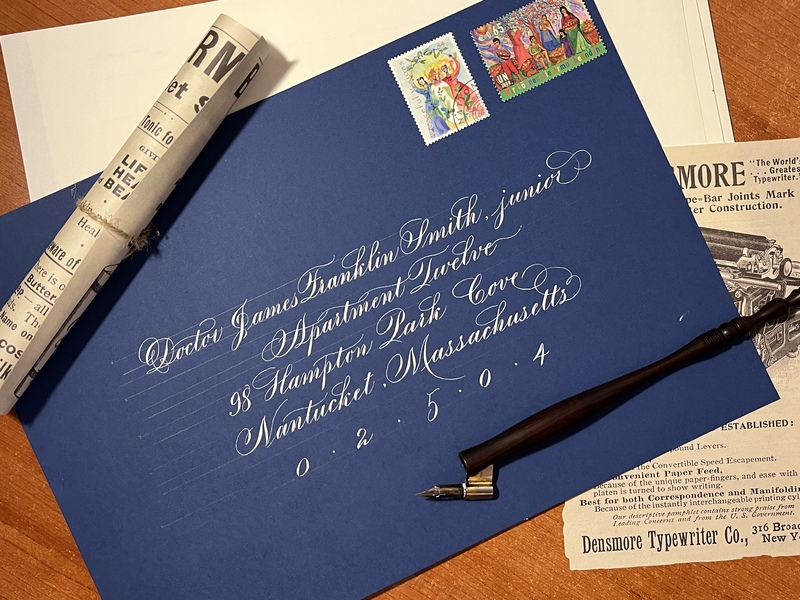 RM B
et s
Tonic fo
GIVE
LIF
HEA
BEA
Heal
ware of
here is o
Butter
— all
s. The
Name on
cos
ilk
65
UN
Doctor James Franklin Smith, junior
Apartment Twelve
98 Hampton Park Cove
Nantucket, Massachusetts
0 · 2 · 5 · 0 · 4
MORE
"The World's
... Greates
Typewriter."
pe-Bar Joints Mark
er Construction.
ESTABLISHED:
ound Levers.
the Convertible Speed Escapement.
onvenient Paper Feed,
Because of the unique paper-fingers, and ease with
platen is turned to show writing.
Best for both Correspondence and Manifoldin
Because of the instantly interchangeable printing cyl
Our descriptive pamphlet contains strong praise from
Leading Concerns and from the U. S. Government.
Densmore Typewriter Co., 316 Broad
New Yo